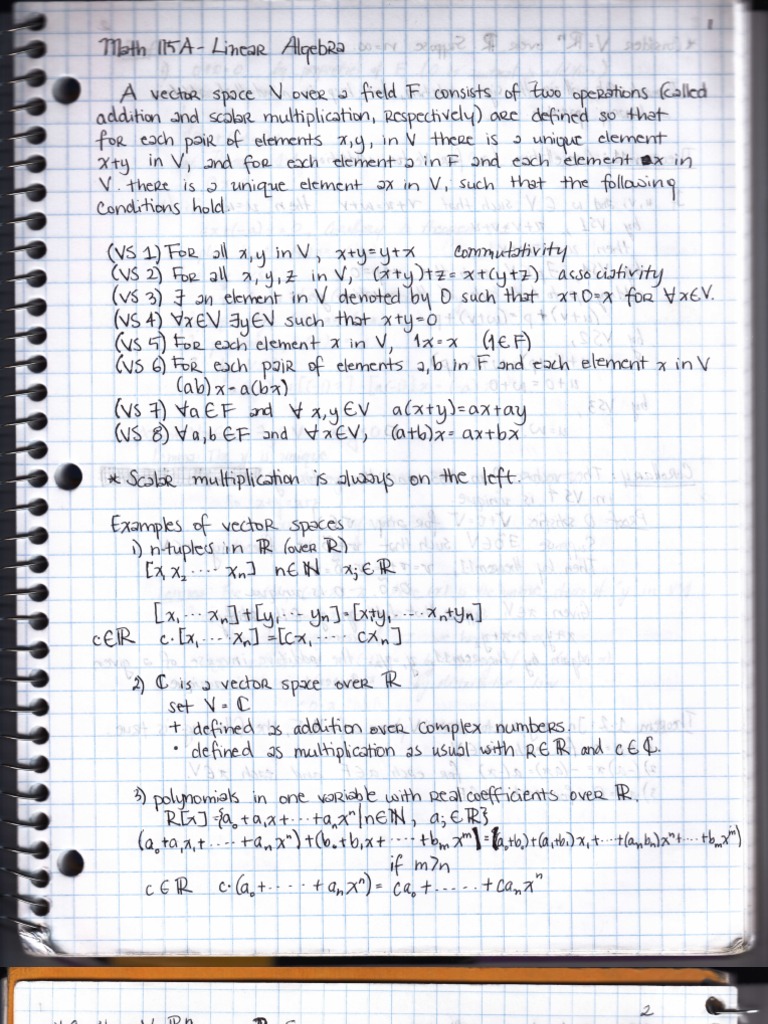 1
Math 115A - Linear Algebra
A vector space V over a field F consists of two operations (called
addition and scalar multiplication, respectively) are defined so that
for each pair of elements x,y, in V there is a unique element
x+y in V, and for each element a in F and each element x in
V. there is a unique element ax in V, such that the following
conditions hold.
(VS 1) For all x,y in V, x+y=y+x commutativity
(VS 2) For all x,y,z in V, (x+y)+z=x+(y+z) associativity
(VS 3) ∃ an element in V denoted by 0 such that x+0=x for ∀x∈V.
(VS 4) ∀x∈V ∃y∈V such that x+y=0
(VS 5) For each element x in V, 1x=x (1∈F)
(VS 6) For each pair of elements a,b in F and each element x in V
(ab)x-a(bx)
(VS 7) ∀a∈F and ∀ x,y∈V a(x+y)=ax+ay
(VS 8) ∀a,b∈F and ∀x∈V, (a+b)x= ax+bx
* Scalar multiplication is always on the left.
Examples of vector spaces
1) n-tuples in ℝ (over ℝ)
[x₁ x₂ ···· xₙ] n∈ℕ xᵢ∈ℝ
[x₁ ··· xₙ]+[y₁ ··· yₙ]=[x+y₁ ···· xₙ+yₙ]
c∈ℝ c·[x₁ ···· xₙ]=[cx₁ ···· cxₙ]
2) ℂ is a vector space over ℝ
set V = ℂ
+ defined as addition over complex numbers.
· defined as multiplication as usual with R∈ℝ and c∈ℂ.
3) polynomials in one variable with real coefficients over ℝ.
R[x]={a₀+a₁x+···+aₙxⁿ|n∈ℕ, aᵢ∈ℝ}
(a₀+a₁x₁+····+aₙxⁿ)+(b₀+b₁x+····+bₘxᵐ)=(a₀+b₀)+(a₁+b₁)x₁+···+(aₙbₙ)xⁿ+···+bₘxᵐ)
if m>n
c∈ℝ c·(a₀+·····+aₙxⁿ)= ca₀+·····+caₙxⁿ
2